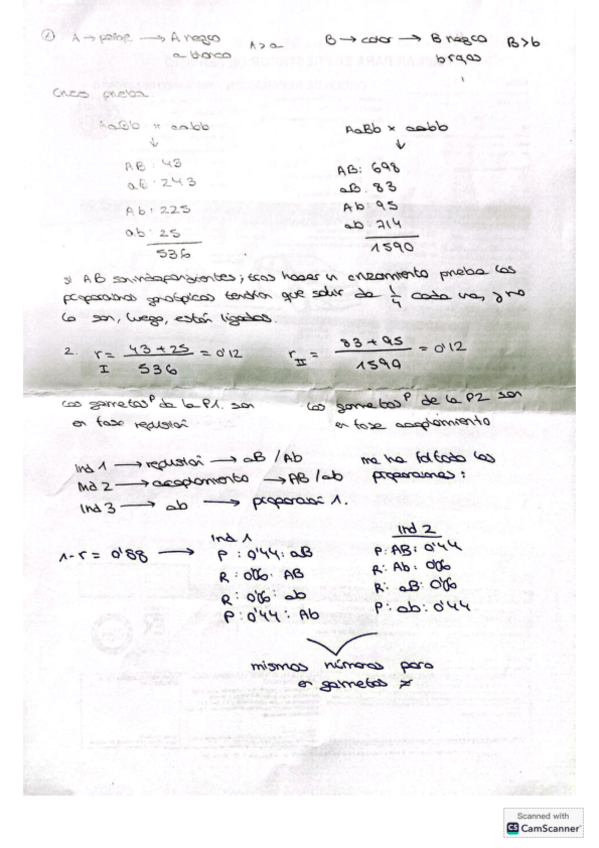 ② A → pelaje → A negro A > a B → color → B negro B > b
a blanco b rojos
Cruce prueba
AaBb × aabb AaBb × aabb
↓ ↓
AB : 43 AB: 698
aB : 243 aB : 83
Ab : 225 Ab : 95
ab : 25 ab 714
536 1590
si AB son independientes; tras hacer un cruzamiento prueba las
proporciones genotípicas tendrían que salir de 1/4 cada una, y no
lo son, luego, están ligados.
2. r = 43 + 25 / 536 = 0'12 r = 83 + 95 / 1590 = 0'12
I II
Los gametos P de la P1. son Los gametos P de la P2 son
en fase repulsión en fase acoplamiento
Ind 1 → repulsión → aB / Ab me ha faltado las
Ind 2 → acoplamiento → AB / ab proporciones :
Ind 3 → ab → proporción 1.
1-r = 0'88 → Ind 1 Ind 2
P : 0'44 : aB P: AB : 0'44
R : 0'06 . AB R : Ab : 0'06
R : 0'06 : ab R : aB : 0'06
P : 0'44 : Ab P : ab : 0'44
mismos números para
en gametos
Scanned with
CS CamScanner